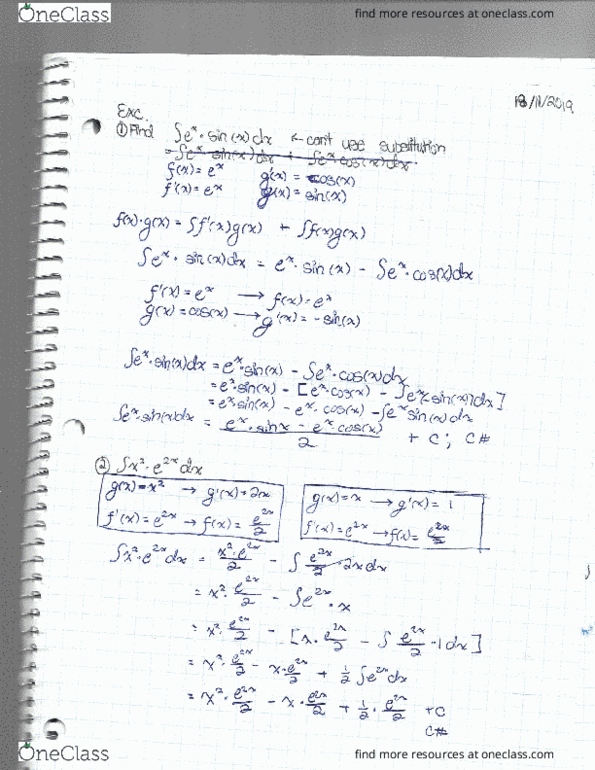 OneClass
find more resources at oneclass.com
18/11/2019
Exc.
① Find ∫e^x · sin(x)dx ← can't use substitution
= ∫e^x sin(x)dx + ∫e^x cos(x)dx
f(x) = e^x g'(x) = cos(x)
f'(x) = e^x g(x) = sin(x)
f(x)·g(x) = ∫f'(x)g(x) + ∫f(x)g(x)
∫e^x · sin(x)dx = e^x · sin(x) - ∫e^x · cos(x)dx
f'(x) = e^x → f(x) = e^x
g(x) = cos(x) → g'(x) = -sin(x)
∫e^x · sin(x)dx = e^x · sin(x) - ∫e^x · cos(x)dx
= e^x · sin(x) - [e^x · cos(x) - ∫e^x(-sin(x))dx]
= e^x · sin(x) - e^x · cos(x) - ∫e^x sin(x)dx
∫e^x · sin(x)dx = (e^x · sin x - e^x · cos(x))/2 + C; C#
② ∫x² · e^2x dx
g(x) = x² → g'(x) = 2x
f'(x) = e^2x → f(x) = e^2x/2
g(x) = x → g'(x) = 1
f'(x) = e^2x → f(x) = e^2x/2
∫x² · e^2x dx = x² · e^2x/2 - ∫ e^2x/2 · 2x dx
= x² · e^2x/2 - ∫e^2x · x
= x² · e^2x/2 - [x · e^2x/2 - ∫ e^2x/2 · 1 dx]
= x² · e^2x/2 - x · e^2x/2 + 1/2 ∫e^2x dx
= x² · e^2x/2 - x · e^2x/2 + 1/2 · e^2x/2 + C
C#
OneClass
find more resources at oneclass.com